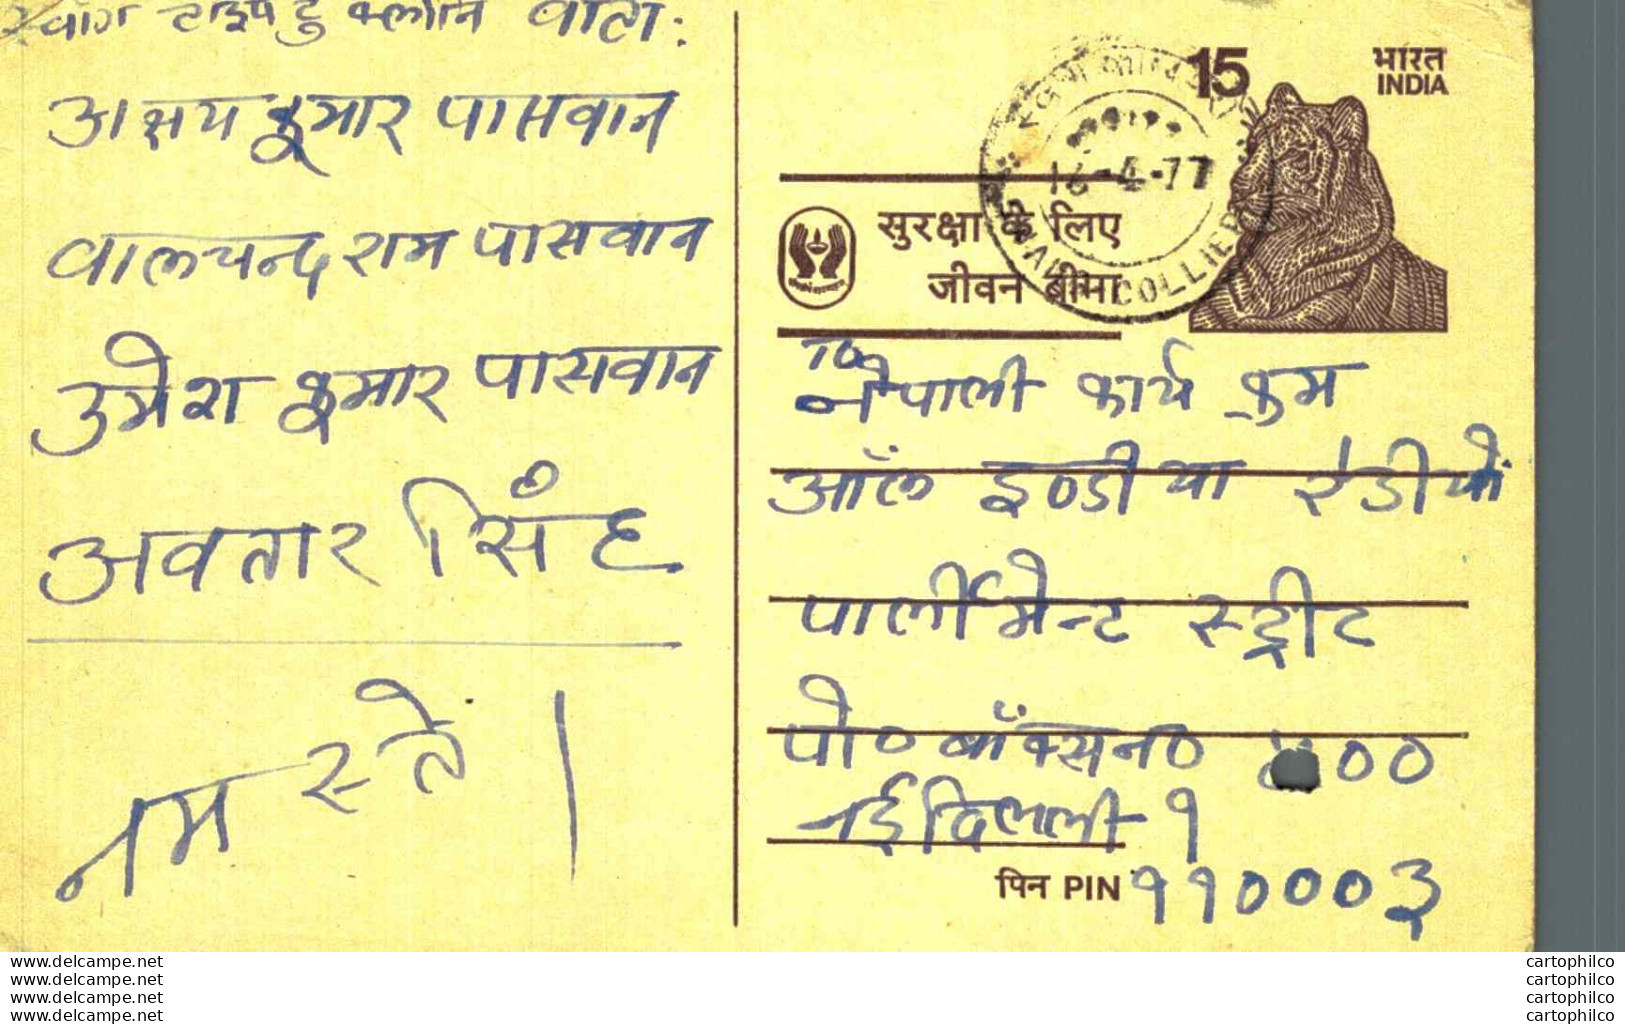 वाला :
अक्षय कुमार पासवान
वालचन्द राम पासवान
उमेश कुमार पासवान
अवतार सिंह
नमस्ते ।
15
भारत
INDIA
16-4-77
COLLIERY
सुरक्षा के लिए
जीवन बीमा
To
नेपाली कार्य क्रम
ऑल इण्डीया रेडीयो
पार्लीमेन्ट स्ट्रीट
पो० बॉक्स न० 00
नई दिल्ली १
पिन PIN ११०००३
www.delcampe.net
www.delcampe.net
www.delcampe.net
www.delcampe.net
cartophilco
cartophilco
cartophilco
cartophilco